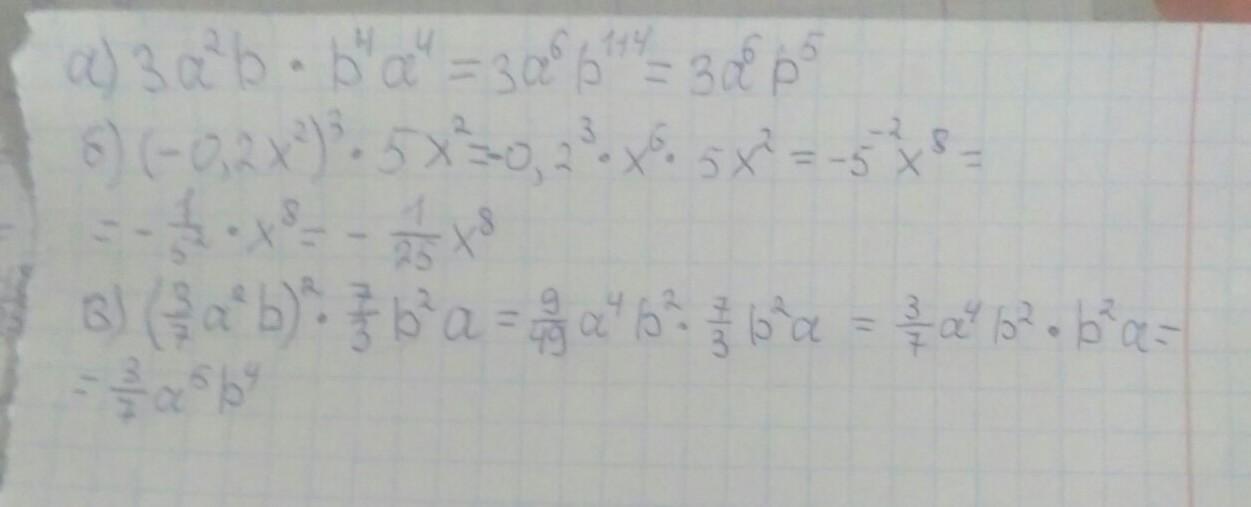 а) 3a²b · b⁴a⁴ = 3a⁶b¹⁺⁴ = 3a⁶b⁵
б) (-0,2x²)³ · 5x² = -0,2³ · x⁶ · 5x² = -5⁻²x⁸ =
= - 1/5² · x⁸ = - 1/25 x⁸
в) (3/7 a²b)² · 7/3 b²a = 9/49 a⁴b² · 7/3 b²a = 3/7 a⁴b² · b²a =
= 3/7 a⁵b⁴